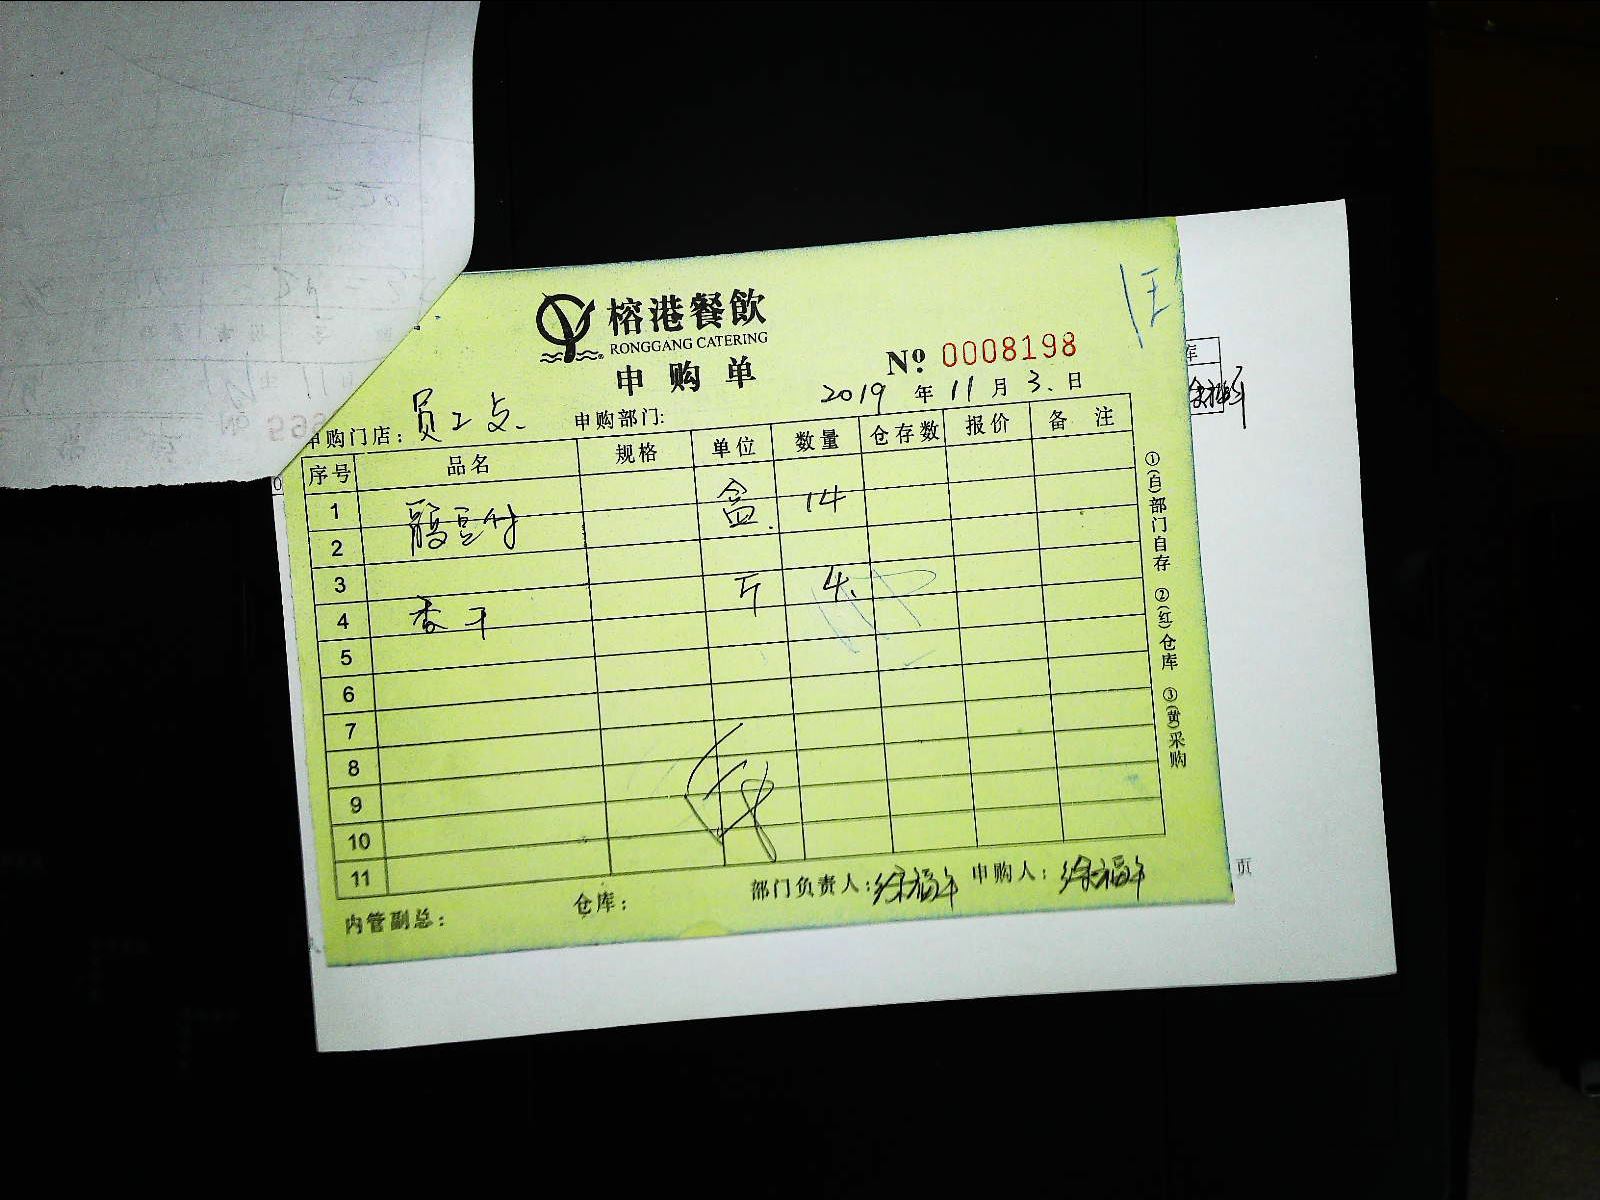 榕港餐飲
RONGGANG CATERING
申购单
№ 0008198
2019 年 11 月 3. 日
申购门店：员工点. 申购部门:
序号 品名 规格 单位 数量 仓存数 报价 备注
1 盒. 14
2 豆付
3 斤 4.
4 香干
5
6
7
8
9
10
11
内管副总： 仓库： 部门负责人:徐福年 申购人：徐福年
①(白)部门自存 ②(红)仓库 ③(黄)采购
库
页